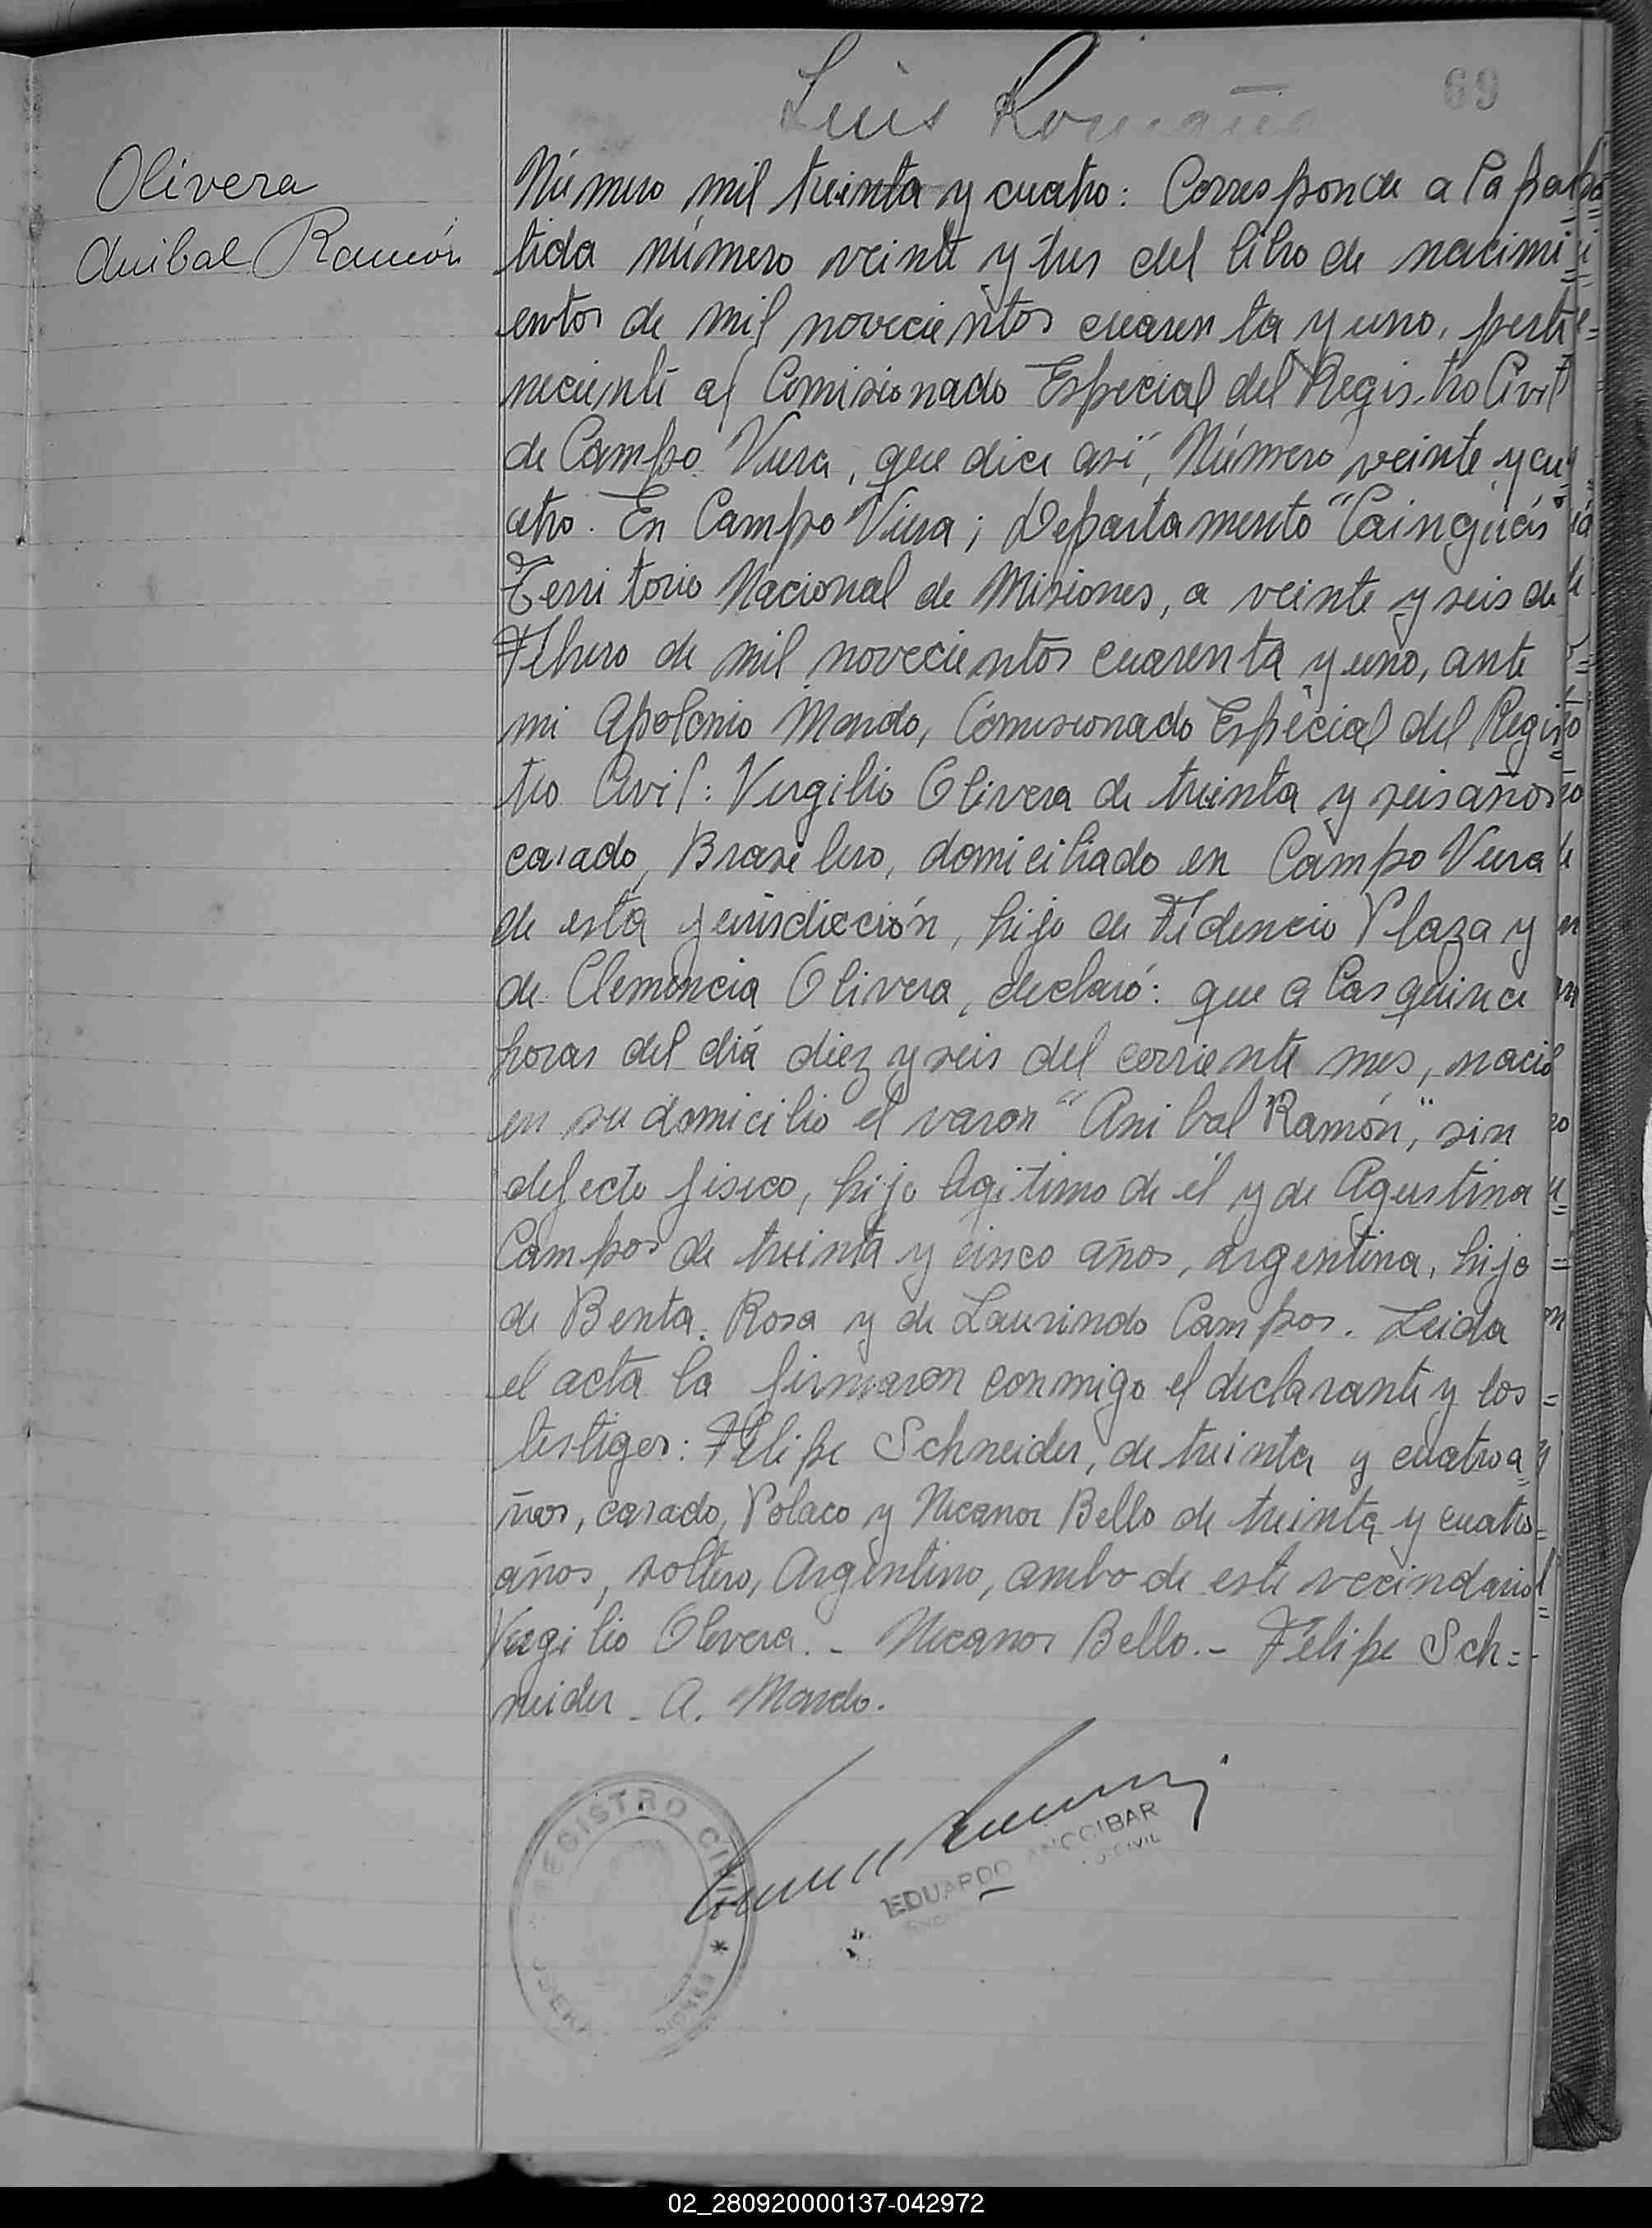 Luis Romaña
69
Olivera
Anibal Ramón
Número mil treinta y cuatro: Corresponde a la par
tida número veinte y tres del libro de nacimi=
entos de mil novecientos cuarenta y uno, perte=
neciente al Comisionado Especial del Registro Civil
de Campo Viera, que dice así, Número veinte y cu=
atro. En Campo Viera; Departamento "Cainguás"
Territorio Nacional de Misiones, a veinte y seis de
Febrero de mil novecientos cuarenta y uno, ante
mi Apolonio Mondo, Comisionado Especial del Regis=
tro Civil: Virgilio Olivera de treinta y seis años
casado, Brasilero, domiciliado en Campo Viera
de esta jurisdicción, hijo de Fidencio Plaza y
de Clemencia Olivera, declaró: que a las quince
horas del diá diez y seis del corriente mes, nació
en su domicilio el varon "Anibal Ramón," sin
defecto fisico, hijo legitimo de él y de Agustina
Campos de treinta y cinco años, argentina, hija
de Benta Rosa y de Laurindo Campos. Leida
el acta la firmaron conmigo el declarante y los
testigos: Felipe Schneider, de treinta y cuatro a=
ños, casado, Polaco y Nicanor Bello de treinta y cuatro
años, soltero, Argentino, ambo de este vecindario
Virgilio Olivera. - Nicanor Bello. - Felipe Sch=
neider - A. Mondo.
REGISTRO CIVIL *
EDUARDO ANOCIBAR
CIVIL
02_280920000137-042972